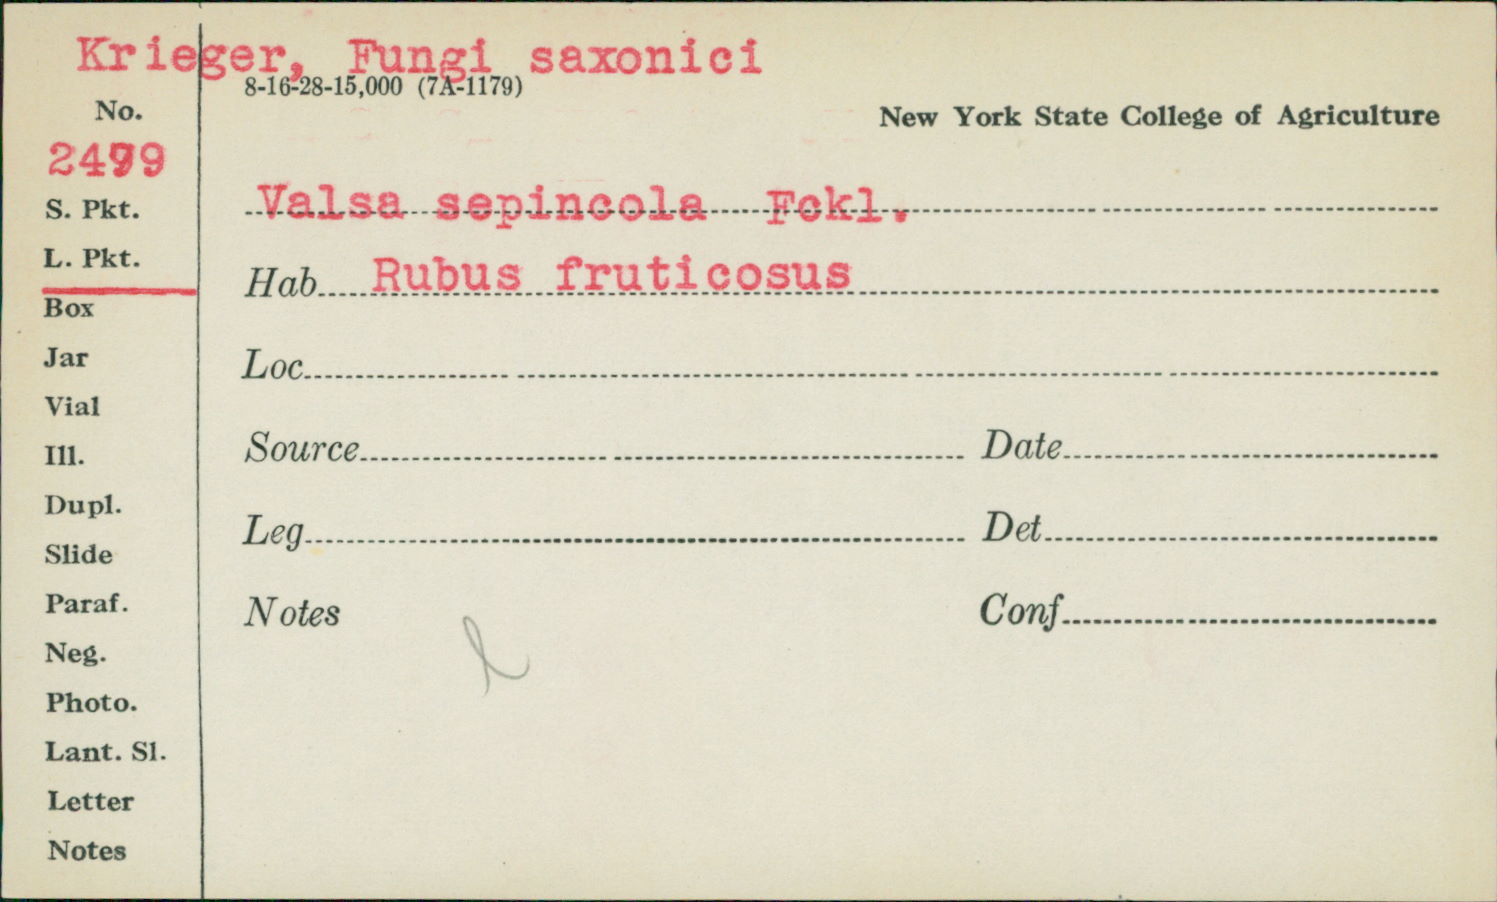 Krieger, Fungi saxonici
8-16-28-15,000 (7A-1179)
No.
New York State College of Agriculture
S. Pkt.
Valsa sepincola Fckl.
L. Pkt.
Hab. Rubus fruticosus
Box
Jar
Loc.
Vial
Ill.
Source
Date
Dupl.
Leg.
Det.
Slide
Paraf.
Notes
Conf.
Neg.
Photo.
Lant. Sl.
Letter
Notes